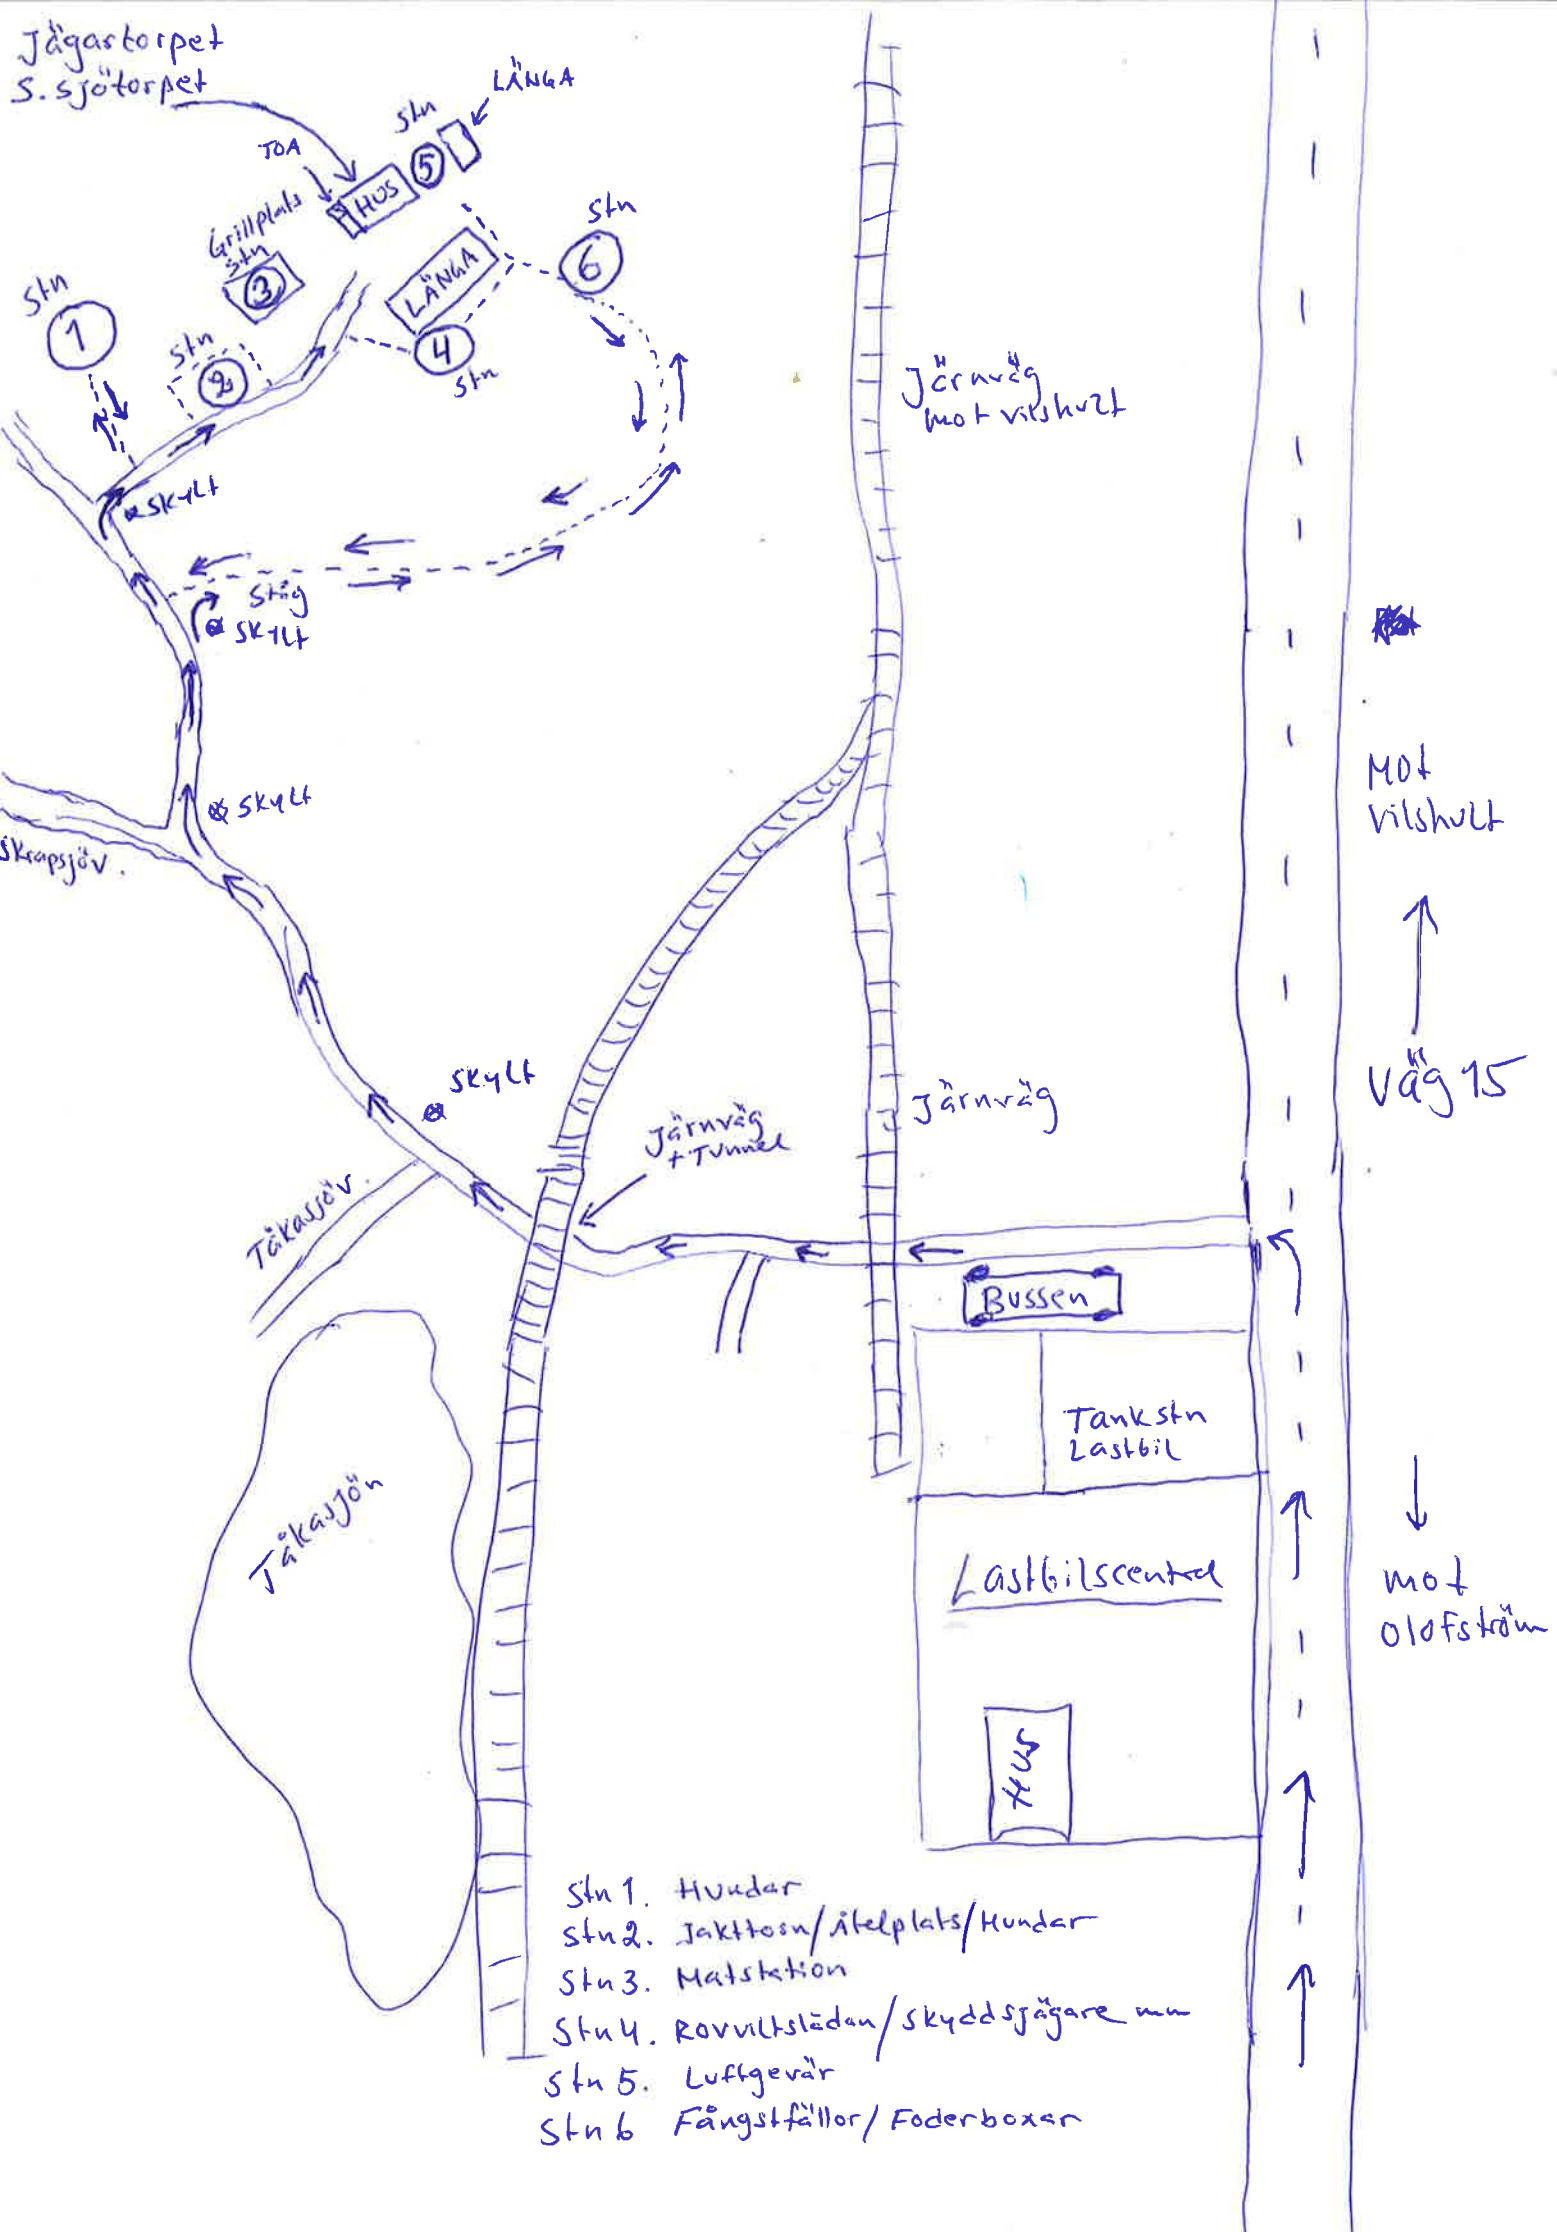 Jägartorpet
S. sjötorpet
LÄNGA
Stn
5
TOA
HUS
Grillplats
Stn
3
Stn
6
LÄNGA
Stn
1
Stn
2
4
Stn
Järnväg
mot vilshult
SKYLT
Stig
SKYLT
Mot
Vilshult
SKYLT
Skrapsjöv.
Väg 15
SKYLT
Järnväg
Järnväg
+ Tunnel
Tåkasjöv.
Bussen
Tankstn
Lastbil
Tåkasjön
Lastbilscentral
mot
Olofström
HUS
Stn 1. Hundar
Stn 2. Jakttorn/Åtelplats/Hundar
Stn 3. Matstation
Stn 4. Rovviltslådan/Skyddsjägare mm
Stn 5. Luftgevär
Stn 6 Fångstfällor/Foderboxar